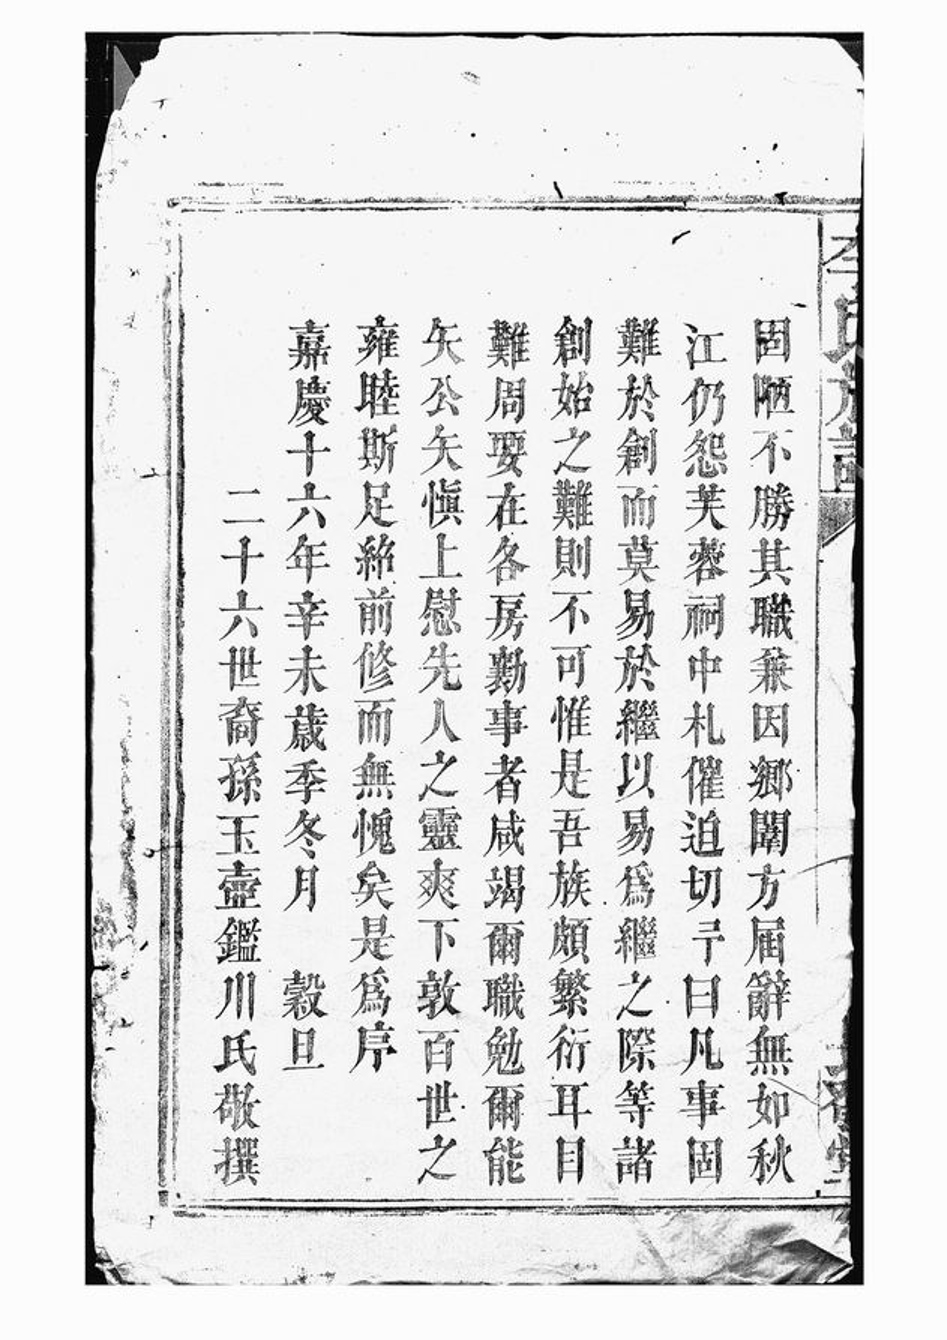 李氏族譜
固陋不勝其職兼因鄉闈方届辭無如秋
江仍怨芙蓉祠中札催迫切予曰凡事固
難於創而莫易於繼以易爲繼之際等諸
創始之難則不可惟是吾族頗繁衍耳目
難周要在各房勷事者咸竭爾職勉爾能
矢公矢愼上慰先人之靈爽下敦百世之
雍睦斯足紹前修而無愧矣是爲序
嘉慶十六年辛未歲季冬月 穀旦
二十六世裔孫玉壼鑑川氏敬撰